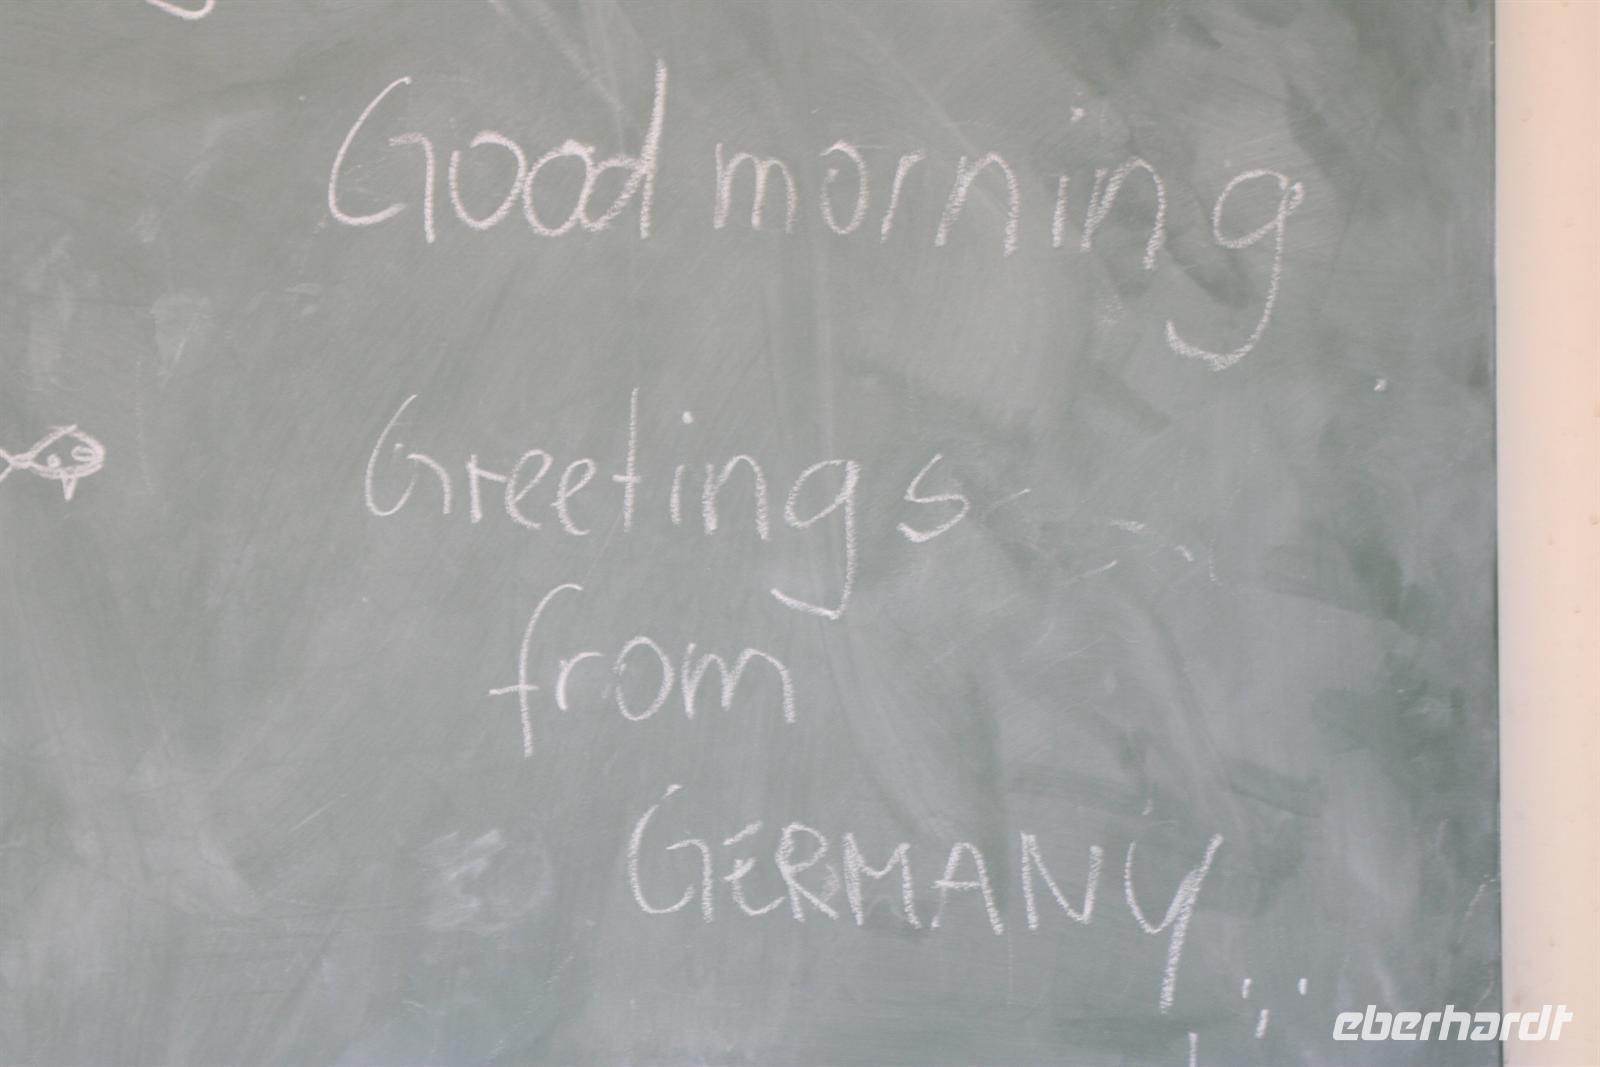 Good morning
Greetings
from
GERMANY
eberhardt